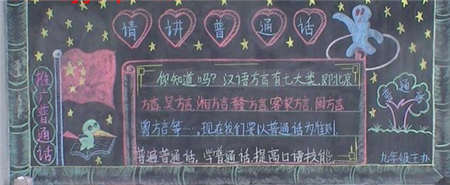 请讲普通话
推广普通话
你知道吗？汉语方言有七大类，即北京
方言、吴方言、湘方言、赣方言、客家方言、闽方言
粤方言等…，现在我们要以普通话为准则，
普遍普通话，学普通话，提高口语技能。
普通话
九年级主办